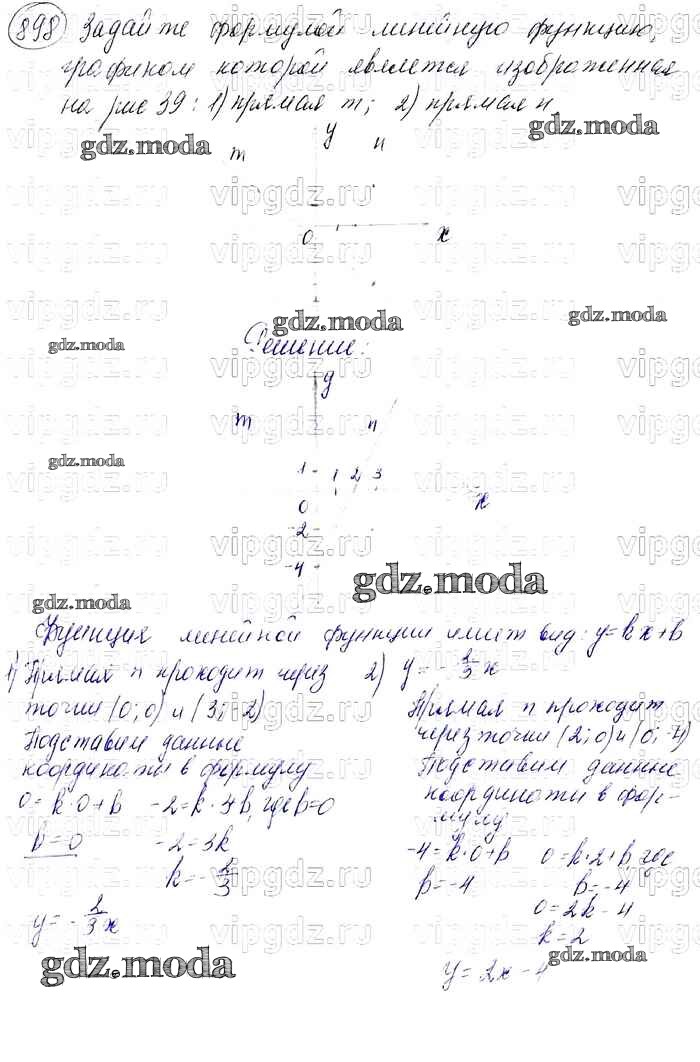 898 Задайте формулой линейную функцию,
графиком которой является изображенная
на рис 39: 1) прямая m; 2) прямая n
gdz.moda
y
m
n
0
x
gdz.moda
gdz.moda
gdz.moda
Решение:
y
m
n
gdz.moda
1
1 2 3
0
x
-2
-4
gdz.moda
gdz.moda
Функция линейной функции имеет вид: y=kx+b
1) Прямая n проходит через
точки (0; 0) и (3; -2)
Подставим данные
координаты в формулу
0=k·0+b -2=k·3+b, где b=0
b=0 -2=3k
k=-2/3
y=-2/3x
2) y=-2/3x
Прямая n проходит
через точки (2; 0) и (0; -4)
Подставим данные
координаты в фор-
мулу
-4=k·0+b 0=k·2+b где
b=-4 b=-4
0=2k-4
k=2
y=2x-4
gdz.moda
vipgdz.ru